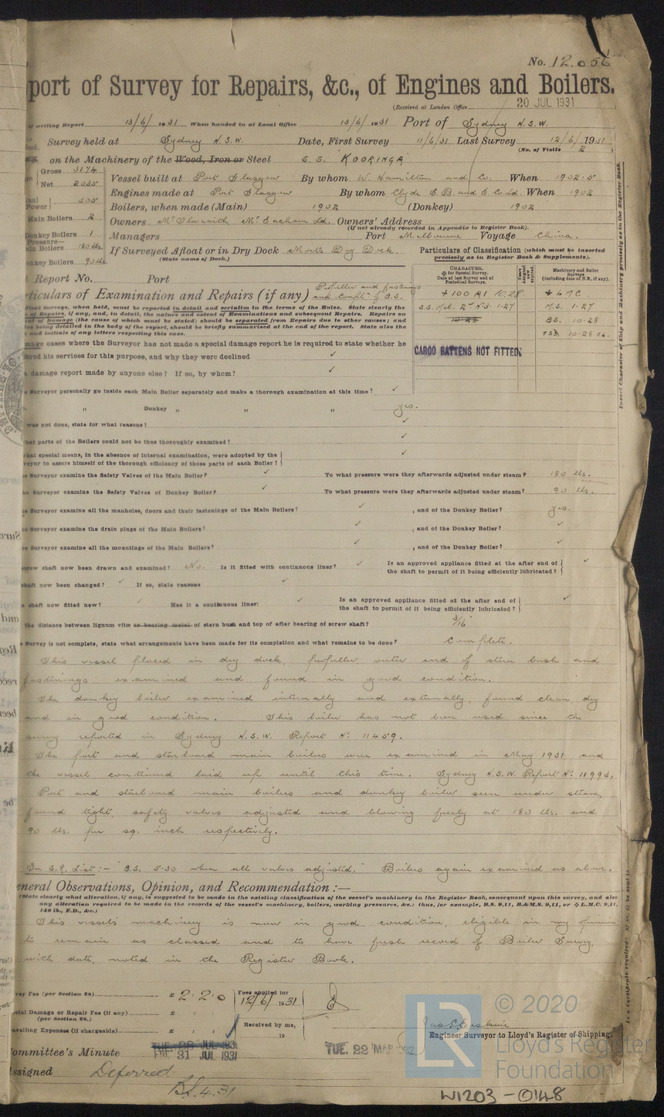 No. 12056
port of Survey for Repairs, &c., of Engines and Boilers.
(Received at London Office 20 JUL 1931
of writing Report 13/6/1931 When handed in at Local Office 13/6/1931 Port of Sydney N.S.W.
Survey held at Sydney N.S.W. Date, First Survey 11/6/31 Last Survey 12/6/1931
(No. of Visits 2)
on the Machinery of the Wood, Iron or Steel S.S. KOORINGA
Gross 3174
Net 2035
Vessel built at Port Glasgow By whom W. Hamilton and Co. When 1902.5
Engines made at Port Glasgow By whom Clyde S.B. and E. Co. Ld. When 1902
Main Boilers 2
Boilers, when made (Main) 1902 (Donkey) 1902
Donkey Boilers 1
Owners McIlwraith McEacharn Ld. Owners' Address
(if not already recorded in Appendix to Register Book).
Boilers 180 lbs.
Managers Port Melbourne Voyage China.
Boilers 90 lbs.
If Surveyed Afloat or in Dry Dock Morts Dry Dock
(State name of Dock.)
Particulars of Classification (which must be inserted precisely as in Register Book & Supplements).
Report No. Port
ticulars of Examination and Repairs (if any) Propeller and fastenings and Compltn of B.S.
+100 A1 10.28
S.S. No. 2 1-27
10-28
+ LMC
M.S. 1-27
B.S. 10-28
CARGO BATTENS NOT FITTED.
age cases where the Surveyor has not made a special damage report he is required to state whether he
ered his services for this purpose, and why they were declined
damage report made by anyone else? If so, by whom?
Surveyor personally go inside each Main Boiler separately and make a thorough examination at this time?
„ Donkey „ „ „ yes.
was not done, state for what reasons?
hat parts of the Boilers could not be thus thoroughly examined?
hat special means, in the absence of internal examination, were adopted by the
veyor to assure himself of the thorough efficiency of those parts of each Boiler?
Surveyor examine the Safety Valves of the Main Boiler? To what pressure were they afterwards adjusted under steam? 180 lbs.
Surveyor examine the Safety Valves of Donkey Boiler? To what pressure were they afterwards adjusted under steam? 90 lbs.
Surveyor examine all the manholes, doors and their fastenings of the Main Boilers? , and of the Donkey Boiler? yes.
Surveyor examine the drain plugs of the Main Boilers? , and of the Donkey Boiler?
Surveyor examine all the mountings of the Main Boilers? , and of the Donkey Boiler?
crew shaft now been drawn and examined? No. Is it fitted with continuous liner? Is an approved appliance fitted at the after end of the shaft to permit of it being efficiently lubricated?
shaft now been changed? If so, state reasons
shaft now fitted new? Has it a continuous liner: Is an approved appliance fitted at the after end of the shaft to permit of it being efficiently lubricated?
the distance between lignum vitæ or bearing metal of stern bush and top of after bearing of screw shaft? 3/16"
Survey is not complete, state what arrangements have been made for its completion and what remains to be done? Complete.
This vessel placed in dry dock, propeller, outer end of stern bush and
fastenings examined and found in good condition.
The donkey boiler examined internally and externally, found clean, dry
and in good condition. This boiler has not been used since the
survey reported in Sydney N.S.W. Report No. 11459.
The port and starboard main boilers were examined in May 1931 and
the vessel continued laid up until this time. Sydney N.S.W. Report No. 11993.
Port and starboard main boilers and donkey boiler seen under steam,
found tight, safety valves adjusted and blowing freely at 180 lbs. and
90 lbs. per sq. inch respectively.
On S.R. List:- "B.S. 5.30 when all valves adjusted." Boilers again examined as above.
eneral Observations, Opinion, and Recommendation :—
(State clearly what alteration, if any, is suggested to be made in the existing classification of the vessel's machinery in the Register Book, consequent upon this survey, and also
any alteration required to be made in the records of the vessel's machinery, boilers, working pressures, &c.; thus, for example, B.S. 9,11, B.&M.S. 9,11, or L.M.C. 9,11,
140 lb., F.D., &c.)
This vessels' machinery is now in good condition, eligible in my opinion
to remain as classed and to have fresh record of Boiler Survey
with date, noted in the Register Book.
Fee (per Section 28) £ 2:2:0 Fees applied for 12/6/1931
Damage or Repair Fee (if any) £ : :
(per Section 28.)
Expenses (if chargeable) £ : : Received by me, 19
Engineer Surveyor to Lloyd's Register of Shipping
ommittee's Minute FRI. 31 JUL 1931 TUE. 22 MAR 1932
ssigned Deferred
B.S. 4.31
© 2020
Lloyd's Register
Foundation
W1203-0148